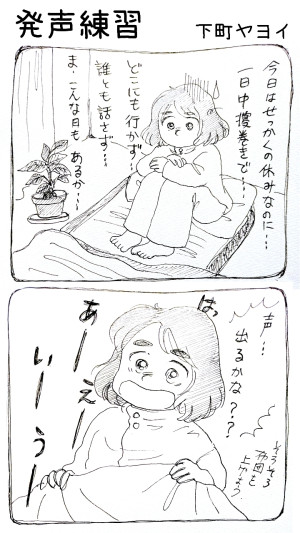 発声練習
下町ヤヨイ
今日はせっかくの休みなのに…
一日中寝巻きで…
どこにも行かず…
誰とも話さず…
ま、こんな日も あるか…
はっ
声…
出るかな??
あーえー
いーうー
そろそろ
布団を
上げよう